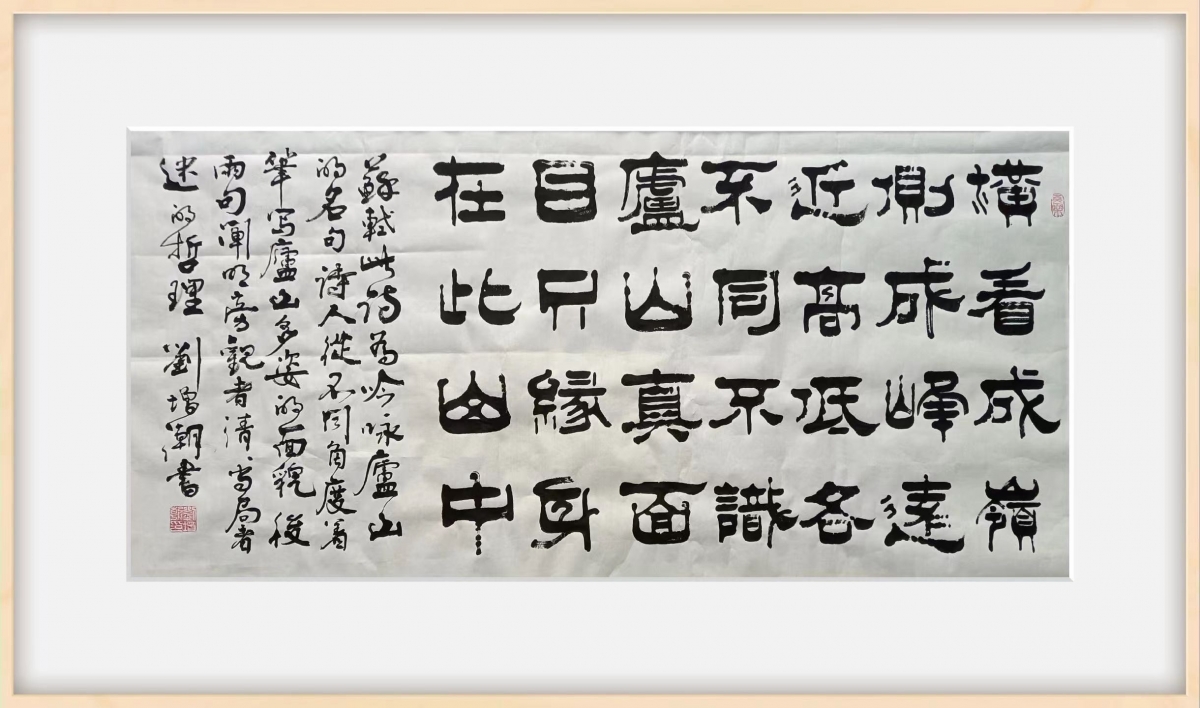 橫看成嶺
側成峰遠
近高低各
不同不識
廬山真面
目只緣身
在此山中
蘇軾此詩為吟咏廬山
的名句詩人從不同角度著
筆写廬山多姿的面貌後
兩句闡明旁觀者清、当局者
迷的哲理 劉增潮書